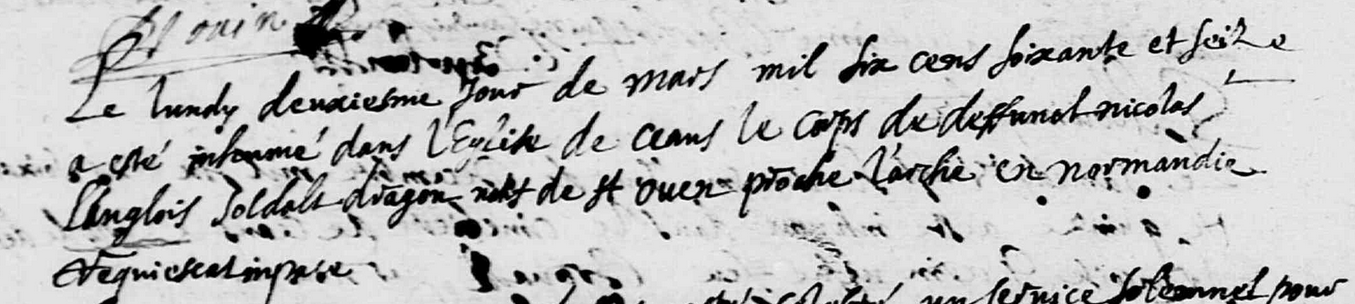 Le lundy deuxiesme Jour de mars mil six cens soixante et seize
a esté inhumé dans l'Eglise de ceans le corps de deffunct nicolas
l'Anglois Soldalt dragon natif de st ouen proche l'arche en normandie
Requiescat in pace
un service solemnel pour